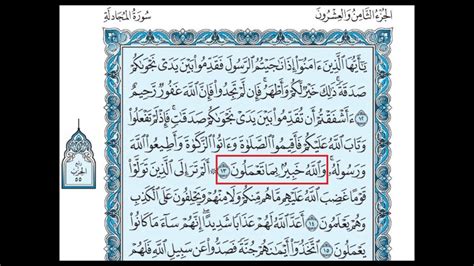 الجزء الثامن والعشرون
سورة المجادلة
يَٰٓأَيُّهَا ٱلَّذِينَ ءَامَنُوٓا۟ إِذَا نَٰجَيْتُمُ ٱلرَّسُولَ فَقَدِّمُوا۟ بَيْنَ يَدَىْ نَجْوَىٰكُمْ
صَدَقَةً ۚ ذَٰلِكَ خَيْرٌ لَّكُمْ وَأَطْهَرُ ۚ فَإِن لَّمْ تَجِدُوا۟ فَإِنَّ ٱللَّهَ غَفُورٌ رَّحِيمٌ
١٢ ءَأَشْفَقْتُمْ أَن تُقَدِّمُوا۟ بَيْنَ يَدَىْ نَجْوَىٰكُمْ صَدَقَٰتٍ ۚ فَإِذْ لَمْ تَفْعَلُوا۟
وَتَابَ ٱللَّهُ عَلَيْكُمْ فَأَقِيمُوا۟ ٱلصَّلَوٰةَ وَءَاتُوا۟ ٱلزَّكَوٰةَ وَأَطِيعُوا۟ ٱللَّهَ
وَرَسُولَهُۥ ۚ وَٱللَّهُ خَبِيرٌۢ بِمَا تَعْمَلُونَ ١٣ ۞ أَلَمْ تَرَ إِلَى ٱلَّذِينَ تَوَلَّوْا۟
قَوْمًا غَضِبَ ٱللَّهُ عَلَيْهِم مَّا هُم مِّنكُمْ وَلَا مِنْهُمْ وَيَحْلِفُونَ عَلَى ٱلْكَذِبِ
وَهُمْ يَعْلَمُونَ ١٤ أَعَدَّ ٱللَّهُ لَهُمْ عَذَابًا شَدِيدًا ۖ إِنَّهُمْ سَآءَ مَا كَانُوا۟
يَعْمَلُونَ ١٥ ٱتَّخَذُوٓا۟ أَيْمَٰنَهُمْ جُنَّةً فَصَدُّوا۟ عَن سَبِيلِ ٱللَّهِ فَلَهُمْ
الحزب
٥٥